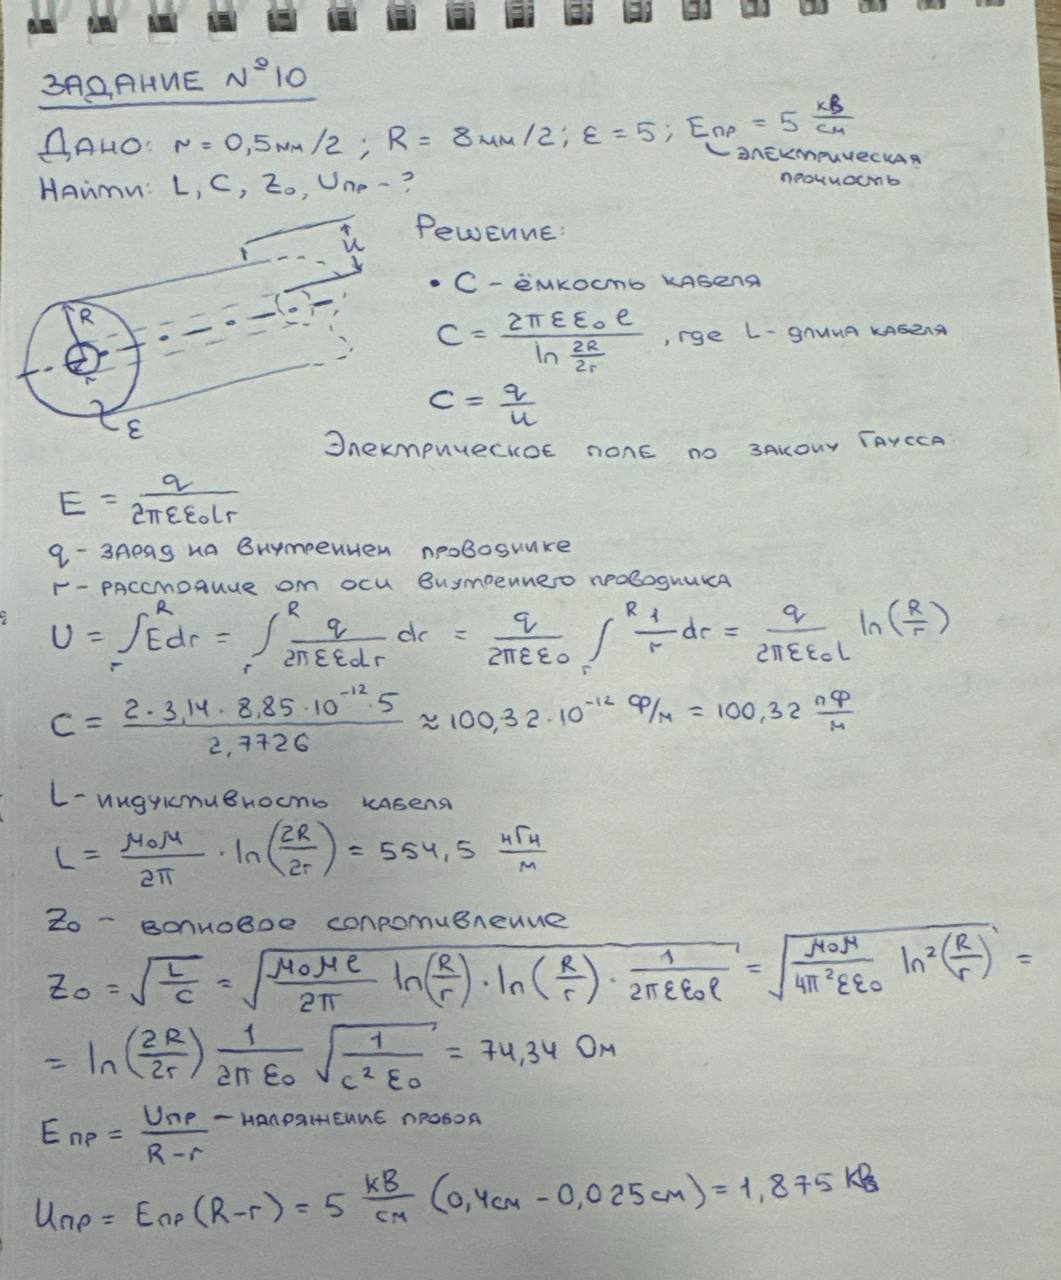 ЗАДАНИЕ №10
ДАНО: r = 0,5мм/2 ; R = 8мм/2 ; ε = 5 ; Eпр = 5 кВ/см
ЭЛЕКТРИЧЕСКАЯ ПРОЧНОСТЬ
НАЙТИ: L, C, Z₀, Uпр - ?
РЕШЕНИЕ:
u
R
r
ε
• C - ёмкость кабеля
C = 2πεε₀l / ln 2R/2r , где L - длина кабеля
C = q/u
Электрическое поле по закону Гаусса
E = q / 2πεε₀Lr
q - заряд на внутреннем проводнике
r - расстояние от оси внутреннего проводника
U = ∫ᵣᴿ Edr = ∫ᵣᴿ q/2πεεdr dr = q/2πεε₀ ∫ᵣᴿ 1/r dr = q/2πεε₀L ln(R/r)
C = 2·3,14·8,85·10⁻¹²·5 / 2,7726 ≈ 100,32·10⁻¹² Ф/м = 100,32 пФ/м
L - индуктивность кабеля
L = μ₀μ/2π · ln(2R/2r) = 554,5 нГн/м
Z₀ - волновое сопротивление
Z₀ = √(L/C) = √(μ₀μl/2π ln(R/r) · ln(R/r) · 1/2πεε₀l) = √(μ₀μ/4π²εε₀ ln²(R/r)) =
= ln(2R/2r) 1/2πε₀ √(1/c²ε₀) = 74,34 Ом
Eпр = Uпр/R-r - напряжение пробоя
Uпр = Eпр(R-r) = 5 кВ/см (0,4см - 0,025см) = 1,875 кВ